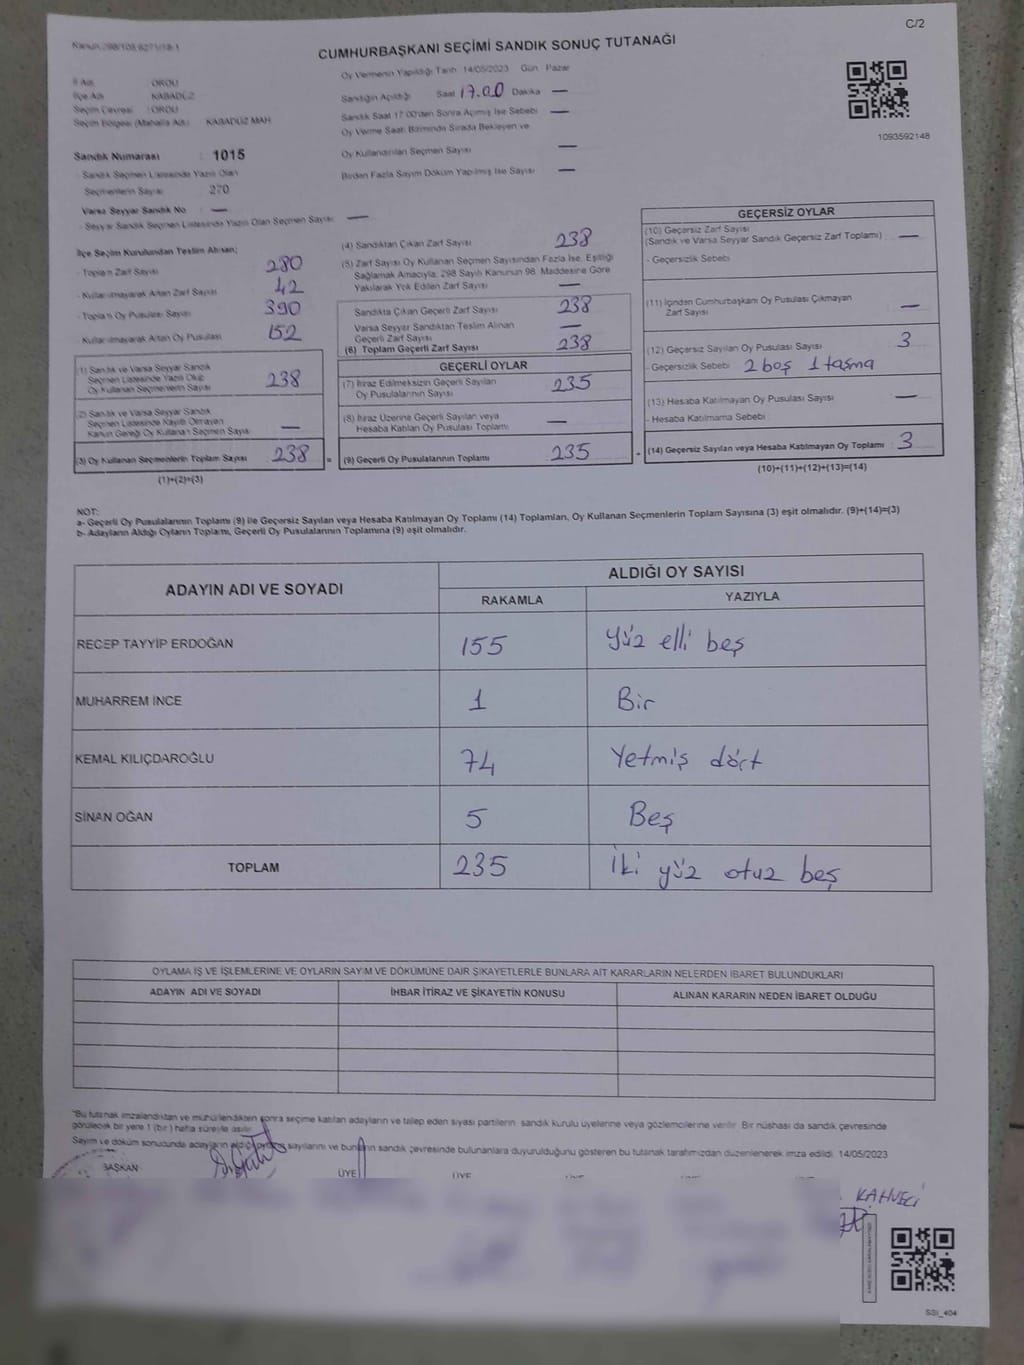 C/2
Kanun 298/108,6271/18-1
CUMHURBAŞKANI SEÇİMİ SANDIK SONUÇ TUTANAĞI
İl Adı : ORDU
İlçe Adı : KABADÜZ
Seçim Çevresi : ORDU
Seçim Bölgesi (Mahalle Adı) : KABADÜZ MAH
Sandık Numarası : 1015
- Sandık Seçmen Listesinde Yazılı Olan
Seçmenlerin Sayısı 270
Varsa Seyyar Sandık No —
- Seyyar Sandık Seçmen Listesinde Yazılı Olan Seçmen Sayısı —
Oy Vermenin Yapıldığı Tarih 14/05/2023 Gün : Pazar
Sandığın Açıldığı Saat 17.00 Dakika —
Sandık Saat 17:00'den Sonra Açılmış İse Sebebi —
Oy Verme Saati Bitiminde Sırada Bekleyen ve
Oy Kullandırılan Seçmen Sayısı —
Birden Fazla Sayım Döküm Yapılmış İse Sayısı —
1093592148
İlçe Seçim Kurulundan Teslim Alınan;
- Toplam Zarf Sayısı 280
- Kullanılmayarak Artan Zarf Sayısı 42
- Toplam Oy Pusulası Sayısı 390
- Kullanılmayarak Artan Oy Pusulası 152
(1) Sandık ve Varsa Seyyar Sandık
Seçmen Listesinde Yazılı Olup
Oy Kullanan Seçmenlerin Sayısı 238
(2) Sandık ve Varsa Seyyar Sandık
Seçmen Listesinde Kayıtlı Olmayan
Kanun Gereği Oy Kullanan Seçmen Sayısı —
(3) Oy Kullanan Seçmenlerin Toplam Sayısı 238 =
(1)+(2)=(3)
(4) Sandıktan Çıkan Zarf Sayısı 238
(5) Zarf Sayısı Oy Kullanan Seçmen Sayısından Fazla İse, Eşitliği
Sağlamak Amacıyla, 298 Sayılı Kanunun 98. Maddesine Göre
Yakılarak Yok Edilen Zarf Sayısı —
Sandıkta Çıkan Geçerli Zarf Sayısı 238
Varsa Seyyar Sandıktan Teslim Alınan
Geçerli Zarf Sayısı —
(6) Toplam Geçerli Zarf Sayısı 238
GEÇERLİ OYLAR
(7) İtiraz Edilmeksizin Geçerli Sayılan
Oy Pusulalarının Sayısı 235
(8) İtiraz Üzerine Geçerli Sayılan veya
Hesaba Katılan Oy Pusulası Toplamı —
(9) Geçerli Oy Pusulalarının Toplamı 235 +
GEÇERSİZ OYLAR
(10) Geçersiz Zarf Sayısı
(Sandık ve Varsa Seyyar Sandık Geçersiz Zarf Toplamı) —
- Geçersizlik Sebebi
(11) İçinden Cumhurbaşkanı Oy Pusulası Çıkmayan
Zarf Sayısı —
(12) Geçersiz Sayılan Oy Pusulası Sayısı 3
- Geçersizlik Sebebi 2 boş 1 taşma
(13) Hesaba Katılmayan Oy Pusulası Sayısı —
- Hesaba Katılmama Sebebi
(14) Geçersiz Sayılan veya Hesaba Katılmayan Oy Toplamı 3
(10)+(11)+(12)+(13)=(14)
NOT:
a- Geçerli Oy Pusulalarının Toplamı (9) ile Geçersiz Sayılan veya Hesaba Katılmayan Oy Toplamı (14) Toplamları, Oy Kullanan Seçmenlerin Toplam Sayısına (3) eşit olmalıdır. (9)+(14)=(3)
b- Adayların Aldığı Oyların Toplamı, Geçerli Oy Pusulalarının Toplamına (9) eşit olmalıdır.
ADAYIN ADI VE SOYADI
ALDIĞI OY SAYISI
RAKAMLA YAZIYLA
RECEP TAYYİP ERDOĞAN 155 yüz elli beş
MUHARREM İNCE 1 Bir
KEMAL KILIÇDAROĞLU 74 Yetmiş dört
SİNAN OĞAN 5 Beş
TOPLAM 235 İki yüz otuz beş
OYLAMA İŞ VE İŞLEMLERİNE VE OYLARIN SAYIM VE DÖKÜMÜNE DAİR ŞİKAYETLERLE BUNLARA AİT KARARLARIN NELERDEN İBARET BULUNDUKLARI
ADAYIN ADI VE SOYADI İHBAR İTİRAZ VE ŞİKAYETİN KONUSU ALINAN KARARIN NEDEN İBARET OLDUĞU
"Bu tutanak imzalandıktan ve mühürlendikten sonra seçime katılan adayların ve talep eden siyasi partilerin sandık kurulu üyelerine veya gözlemcilerine verilir. Bir nüshası da sandık çevresinde
görülecek bir yere 1 (bir) hafta süreyle asılır.
Sayım ve döküm sonucunda adayların aldığı oy sayılarını ve bunların sandık çevresinde bulunanlara duyurulduğunu gösteren bu tutanak tarafımızdan düzenlenerek imza edildi. 14/05/2023
BAŞKAN ÜYE ÜYE
KAHVECİ
SSI_404